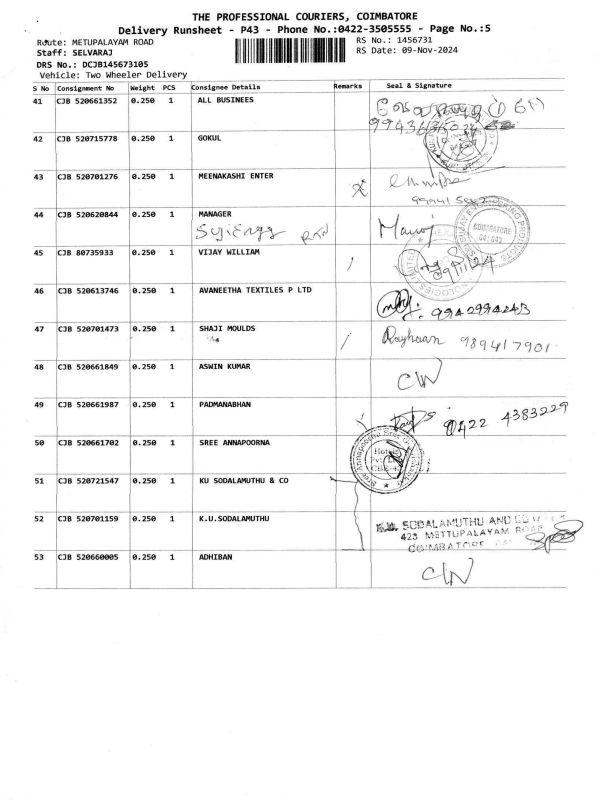 THE PROFESSIONAL COURIERS, COIMBATORE
Delivery Runsheet - P43 - Phone No.:0422-3505555 - Page No.:5
Route: METUPALAYAM ROAD
RS No.: 1456731
Staff: SELVARAJ
RS Date: 09-Nov-2024
DRS No.: DCJB145673105
Vehicle: Two Wheeler Delivery
S No Consignment No Weight PCS Consignee Details Remarks Seal & Signature
41 CJB 520661352 0.250 1 ALL BUSINEES
42 CJB 520715778 0.250 1 GOKUL
43 CJB 520701276 0.250 1 MEENAKASHI ENTER
44 CJB 520620844 0.250 1 MANAGER
COIMBATORE
641 043
45 CJB 80735933 0.250 1 VIJAY WILLIAM
9/11/24
46 CJB 520613746 0.250 1 AVANEETHA TEXTILES P LTD
9942994243
47 CJB 520701473 0.250 1 SHAJI MOULDS
Rayhaan 9894417901
48 CJB 520661849 0.250 1 ASWIN KUMAR
C/N
49 CJB 520661987 0.250 1 PADMANABHAN
0422 4383229
50 CJB 520661702 0.250 1 SREE ANNAPOORNA
51 CJB 520721547 0.250 1 KU SODALAMUTHU & CO
52 CJB 520701159 0.250 1 K.U.SODALAMUTHU
K.U. SODALAMUTHU AND CO
423 METTUPALAYAM ROAD
COIMBATORE
53 CJB 520660005 0.250 1 ADHIBAN
C/N